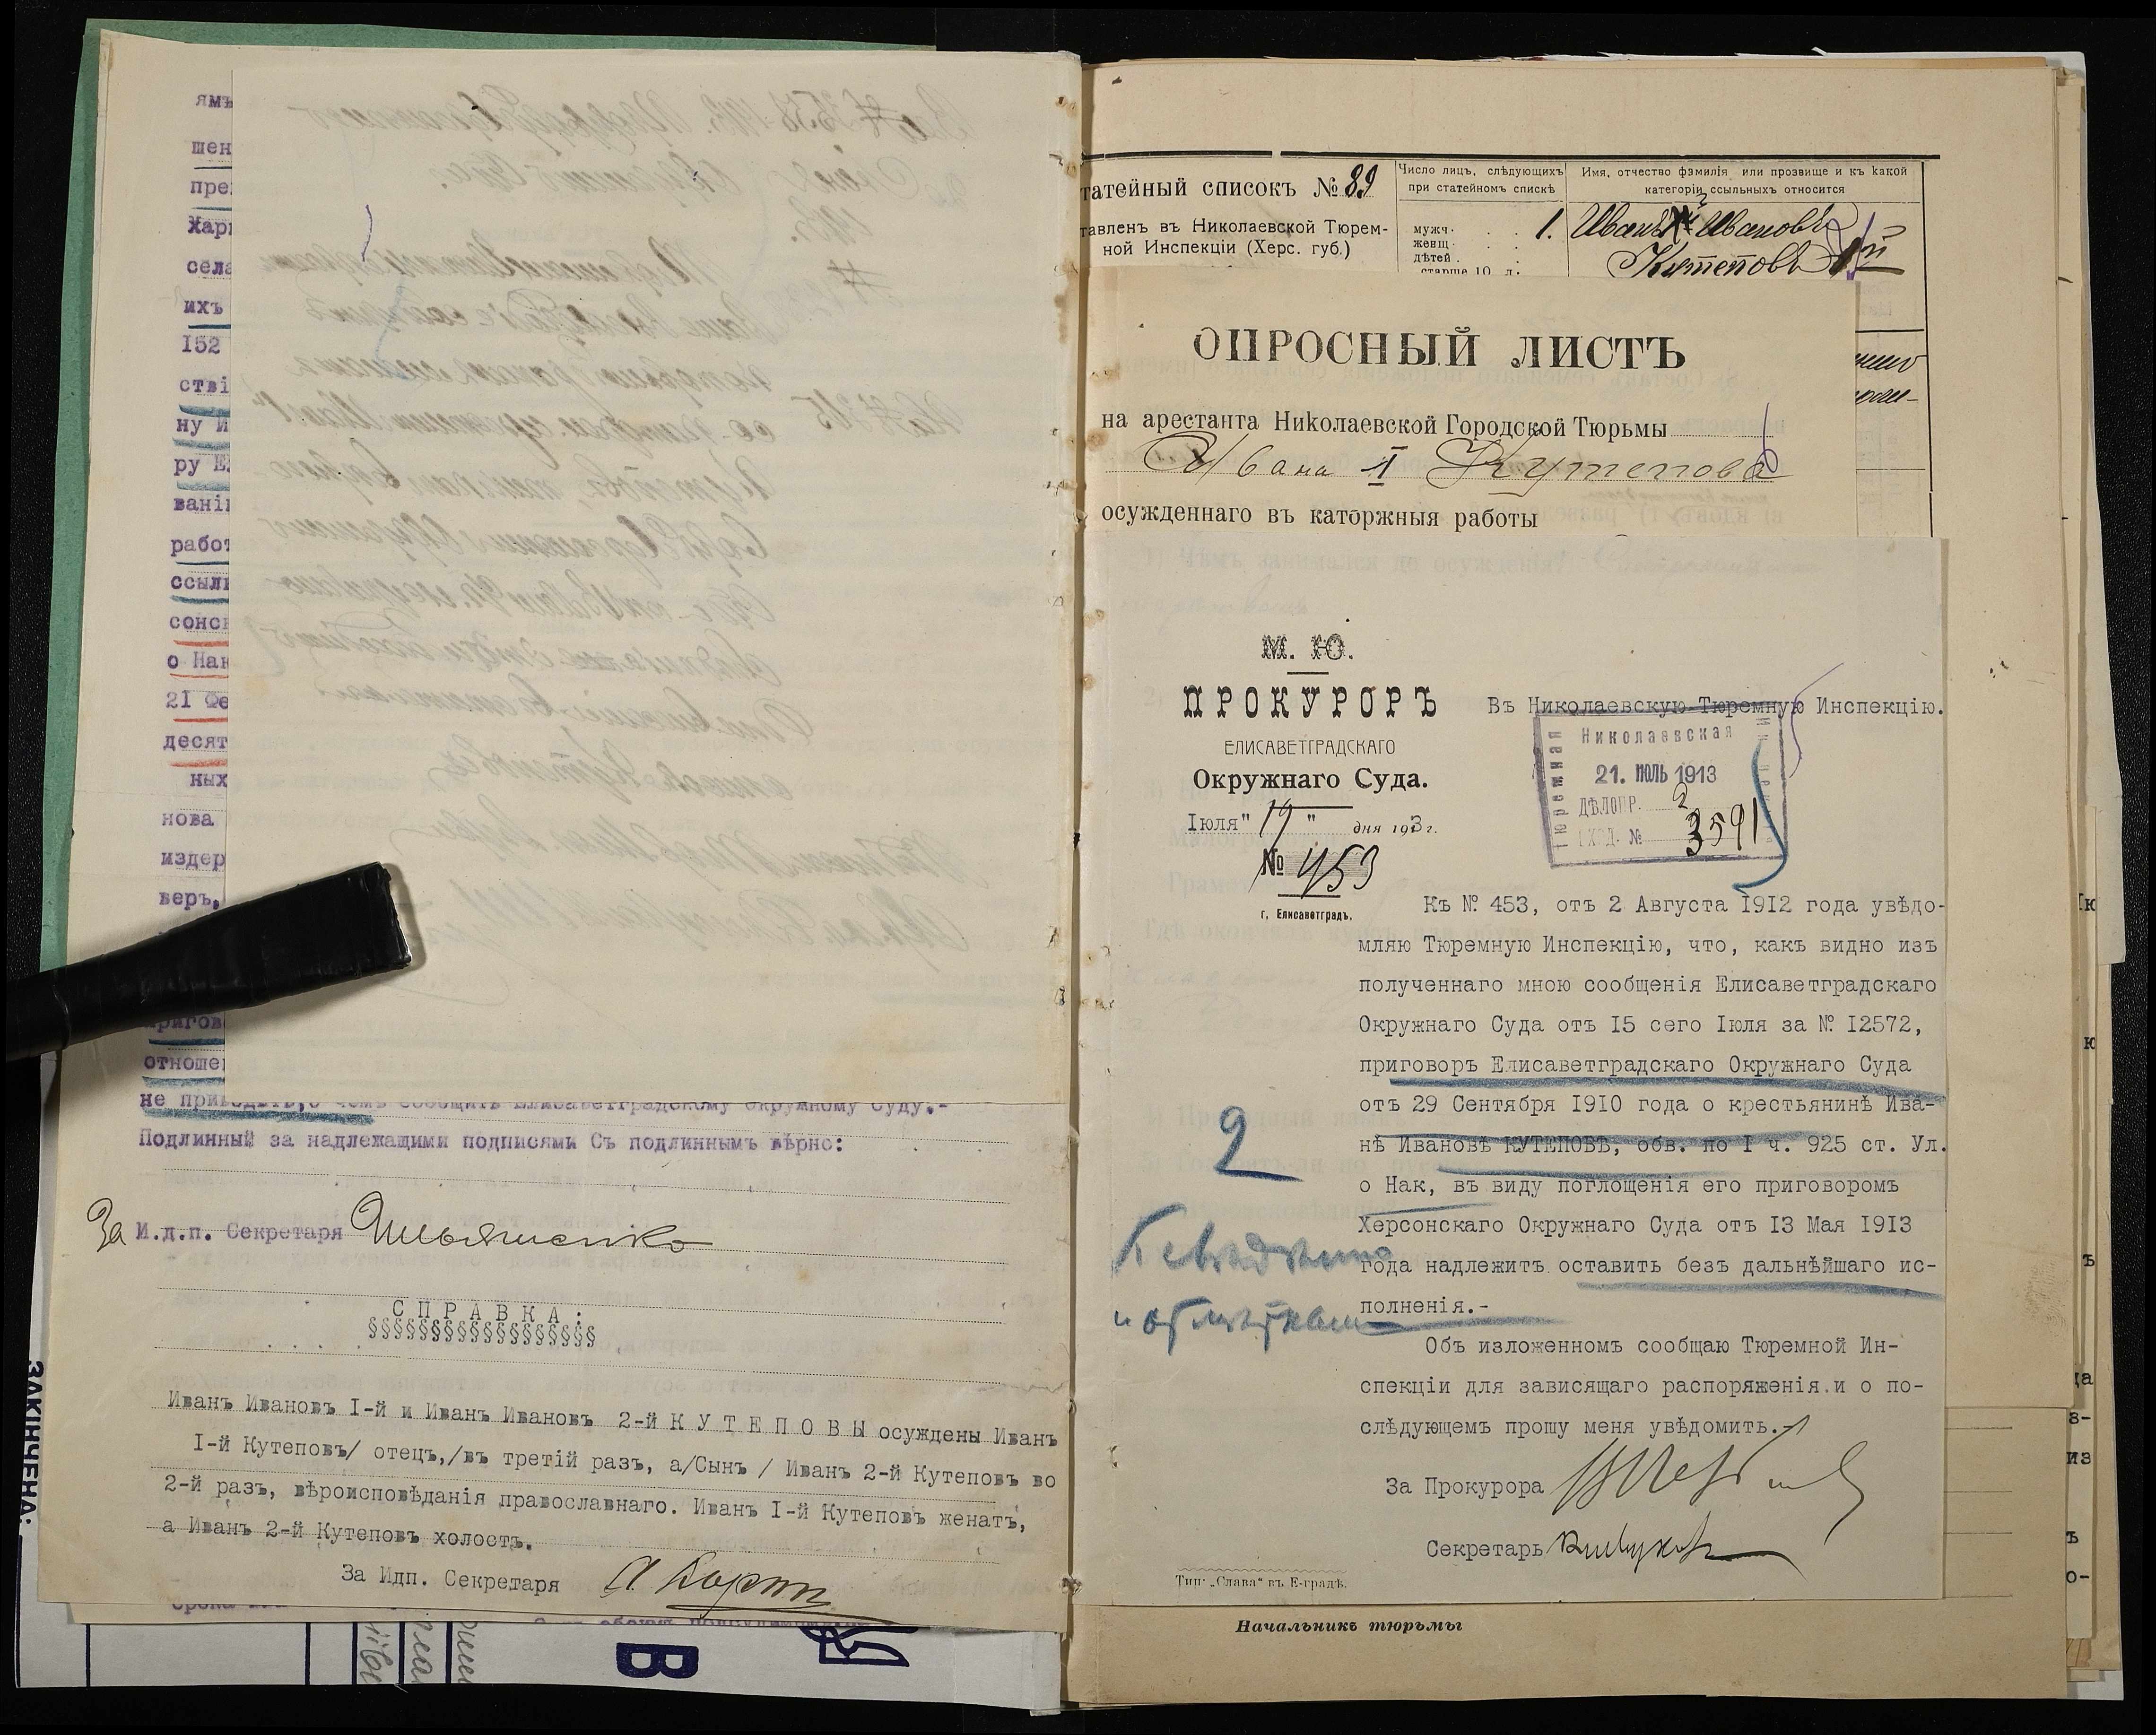 ямъ
шен
пре
Харь
села
ихъ
152
стві
ну И
ру Е
вані
работ
ссыл
сонс
о Нак
21 Фе
десят
ных
нова
издер
веръ,
пригов
отноше
не приводить, о чемъ сообщить Елисаветградскому Окружному Суду.-
Подлинный за надлежащими подписями Съ подлиннымъ вѣрно:
За И.д.п. Секретаря
СПРАВКА:
§§§§§§§§§§§§§§§§§§
Иванъ Ивановъ I-й и Иванъ Ивановъ 2-й КУТЕПОВЫ осуждены Иванъ
I-й Кутеповъ/ отец,/въ третій разъ, а/Сынъ / Иванъ 2-й Кутеповъ во
2-й разъ, вѣроисповѣданія православнаго. Иванъ I-й Кутеповъ женатъ,
а Иванъ 2-й Кутеповъ холостъ.
За Идп. Секретаря
ЗАКІНЧЕНА:
В
татейный списокъ № 89
тавленъ въ Николаевской Тюрем-
ной Инспекціи (Херс. губ.)
Число лицъ, слѣдующихъ
при статейномъ спискѣ
мужч. . . 1.
женщ. . .
дѣтей . .
старше 10 л.
Имя, отчество фамилія или прозвище и къ какой
категоріи ссыльныхъ относится
Иванъ Ивановъ
Кутеповъ 1й
ОПРОСНЫЙ ЛИСТЪ
на арестанта Николаевской Городской Тюрьмы
Ивана I Кутепова
осужденнаго въ каторжныя работы
М. Ю.
ПРОКУРОРЪ
ЕЛИСАВЕТГРАДСКАГО
Окружнаго Суда.
Іюля" 19 " дня 1913 г.
№ 453
г. Елисаветградъ.
Въ Николаевскую Тюремную Инспекцію.
Тюремная
Николаевская
21. ИЮЛЬ 1913
ДѢЛОПР. 2
ВХОД. № 3591
Къ № 453, отъ 2 Августа 1912 года увѣдо-
мляю Тюремную Инспекцію, что, какъ видно изъ
полученнаго мною сообщенія Елисаветградскаго
Окружнаго Суда отъ 15 сего Іюля за № 12572,
приговоръ Елисаветградскаго Окружнаго Суда
отъ 29 Сентября 1910 года о крестьянинѣ Ива-
нѣ Ивановѣ КУТЕПОВѢ, обв. по I ч. 925 ст. Ул.
о Нак, въ виду поглощенія его приговоромъ
Херсонскаго Окружнаго Суда отъ 13 Мая 1913
года надлежитъ оставить безъ дальнѣйшаго ис-
полненія.-
Объ изложенномъ сообщаю Тюремной Ин-
спекціи для зависящаго распоряженія и о по-
слѣдующемъ прошу меня увѣдомить.-
2
За Прокурора
Секретарь
Тип: „Слава" въ Е-градѣ.
Начальникъ тюрьмы